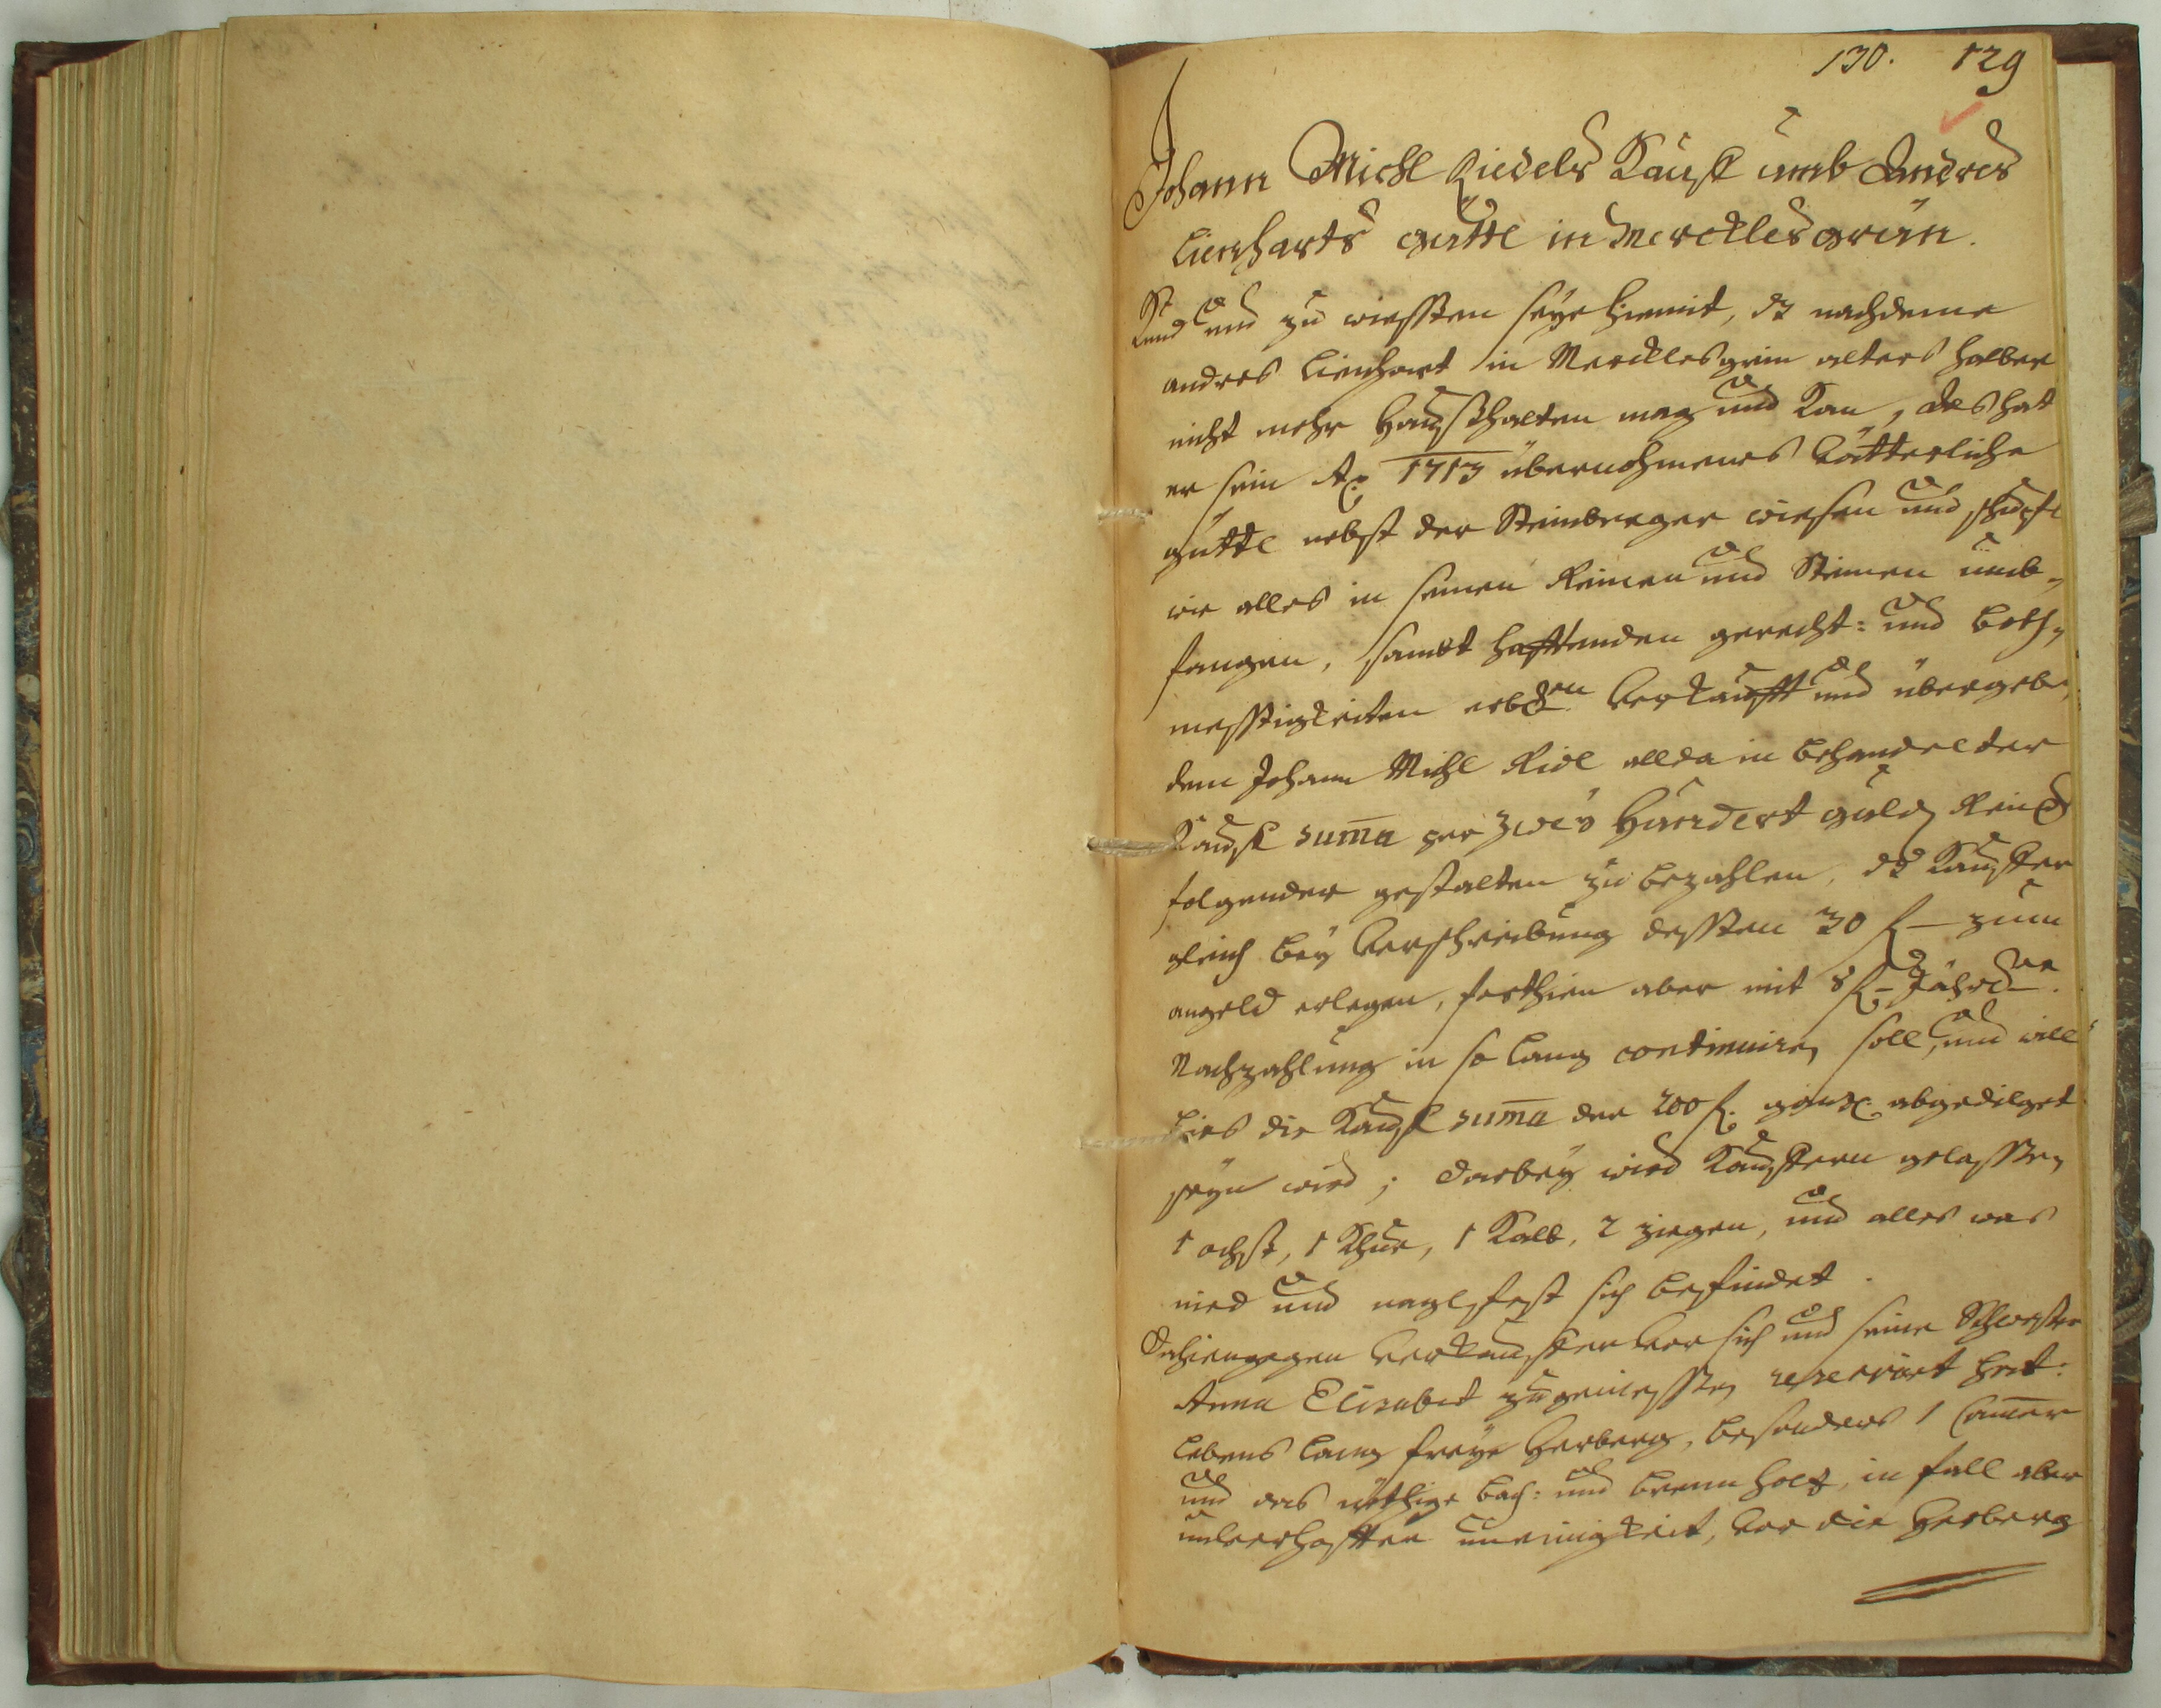 130. 129
Johann Michl Riedels Kauff umb Andres
Lienharts güttl in Merckles grün.
Kund und zu wiessen seye hiemit, dz nachdeme
andres Lienhart in Merckles grün alters halber
nicht mehr Haußhalten mag und Kan, als hat
er sein Ao: 1713 übernohmenes Vätterliche
güttl nebst der Steinberger wiesen und
wie alles in seinen Reinen und Steinen umb-
fangen, sambt hafftenden gerecht: und both-
mässigkeiten verkaufft und übergeb.
dem Johann Michl Ridl allda in behandelter
Kauff suma per Zwey Hundert guld. Rein.
folgender gestalten zu bezahlen, dz Kauffer
gleich bey Verschreibung dessen 30 f. zum
angeld erlegen, forthien aber mit 8 f. Jährl.
Nachzahlung in so lang continuiren soll, und will
bies die Kauff suma der 200 f. gäntzl. abgedilget
seyn wird; Darbey wird Kauffern gelassen
1 ochß, 1 Khue, 1 Kalb, 2 ziegen, und alles was
nied und naglfest sich befindet.
Dahiengegen Verkauffer vor sich und seine Schwester
Anna Elisabet zugeniessen reservirt hat:
Lebens lang freye Herberg, besonders 1 Camer
und das nöthige bach: und brenn holtz, in fall aber
unverhoffter uneinigkeit, vor die Herberg